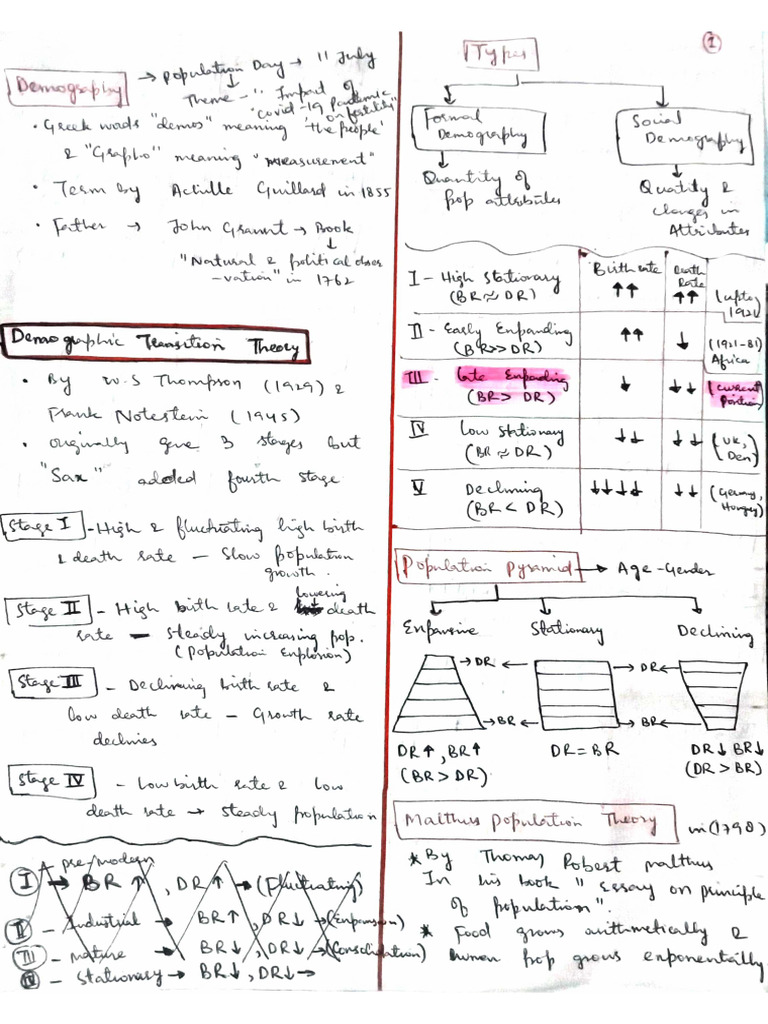 ①
Demography → Population Day → 11 July
Theme - "Impact of
Covid-19 Pandemic
on fertility"
• Greek wods "demos" meaning 'the people'
& "Grapho" meaning "measurement"
• Term by Achille Guillard in 1855
• Father → John Graunt → Book
↓
"Natural & political obser
-vation" in 1762
Demographic Transition Theory
• By W.S Thompson (1929) &
Frank Notestein (1945)
• originally gave 3 stages but
"Sax" added fourth stage
Stage I - High & fluctuating high birth
& death rate — Slow population
growth.
Stage II - High birth rate & lowering death
rate — steady increasing pop.
(Population Explosion)
Stage III - Declining birth rate &
low death rate - Growth rate
declines
Stage IV - Low birth rate & low
death rate → steady population
- pre-modern
I → BR↑, DR↑ → (Fluctuating)
II - Industrial → BR↑, DR↓ → (Expansion)
III - mature → BR↓, DR↓ → (Consolidation)
IV - Stationary → BR↓, DR↓ →
Types
Formal Demography
Social Demography
Quantity of
pop attributes
Quality &
changes in
Attributes
Birth rate Death Rate
I - High Stationary (BR ≈ DR) ↑↑ ↑↑ (upto 1921)
II - Early Expanding (BR>> DR) ↑↑ ↓ (1921-81) Africa
III - late Expanding (BR> DR) ↓ ↓↓ (current Position)
IV Low Stationary (BR ≈ DR) ↓↓ ↓↓ (UK, Den)
V Declining (BR < DR) ↓↓↓↓ ↓↓ (Germany, Hungry)
Population Pyramid → Age-Gender
Expansive Stationary Declining
→ DR ← → DR ←
→ BR ← → BR ←
DR↑, BR↑ DR = BR DR↓ BR↓
(BR > DR) (DR > BR)
Malthus Population Theory in (1798)
* By Thomas Robert malthus
In his book "Essay on principle
of population".
* Food grows arithmetically &
human pop grows exponentially